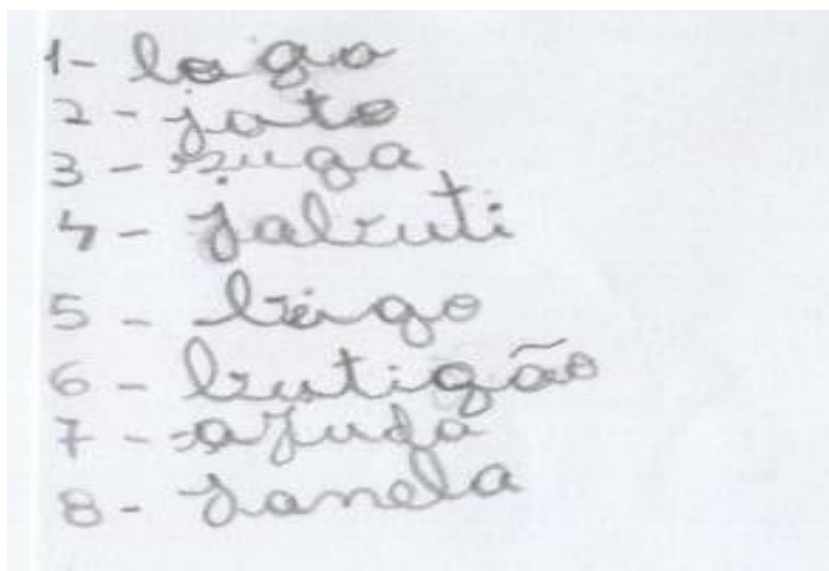 1- logo
2- jato
3- ruga
4- jabuti
5- beigo
6- butigão
7- ajuda
8- janela